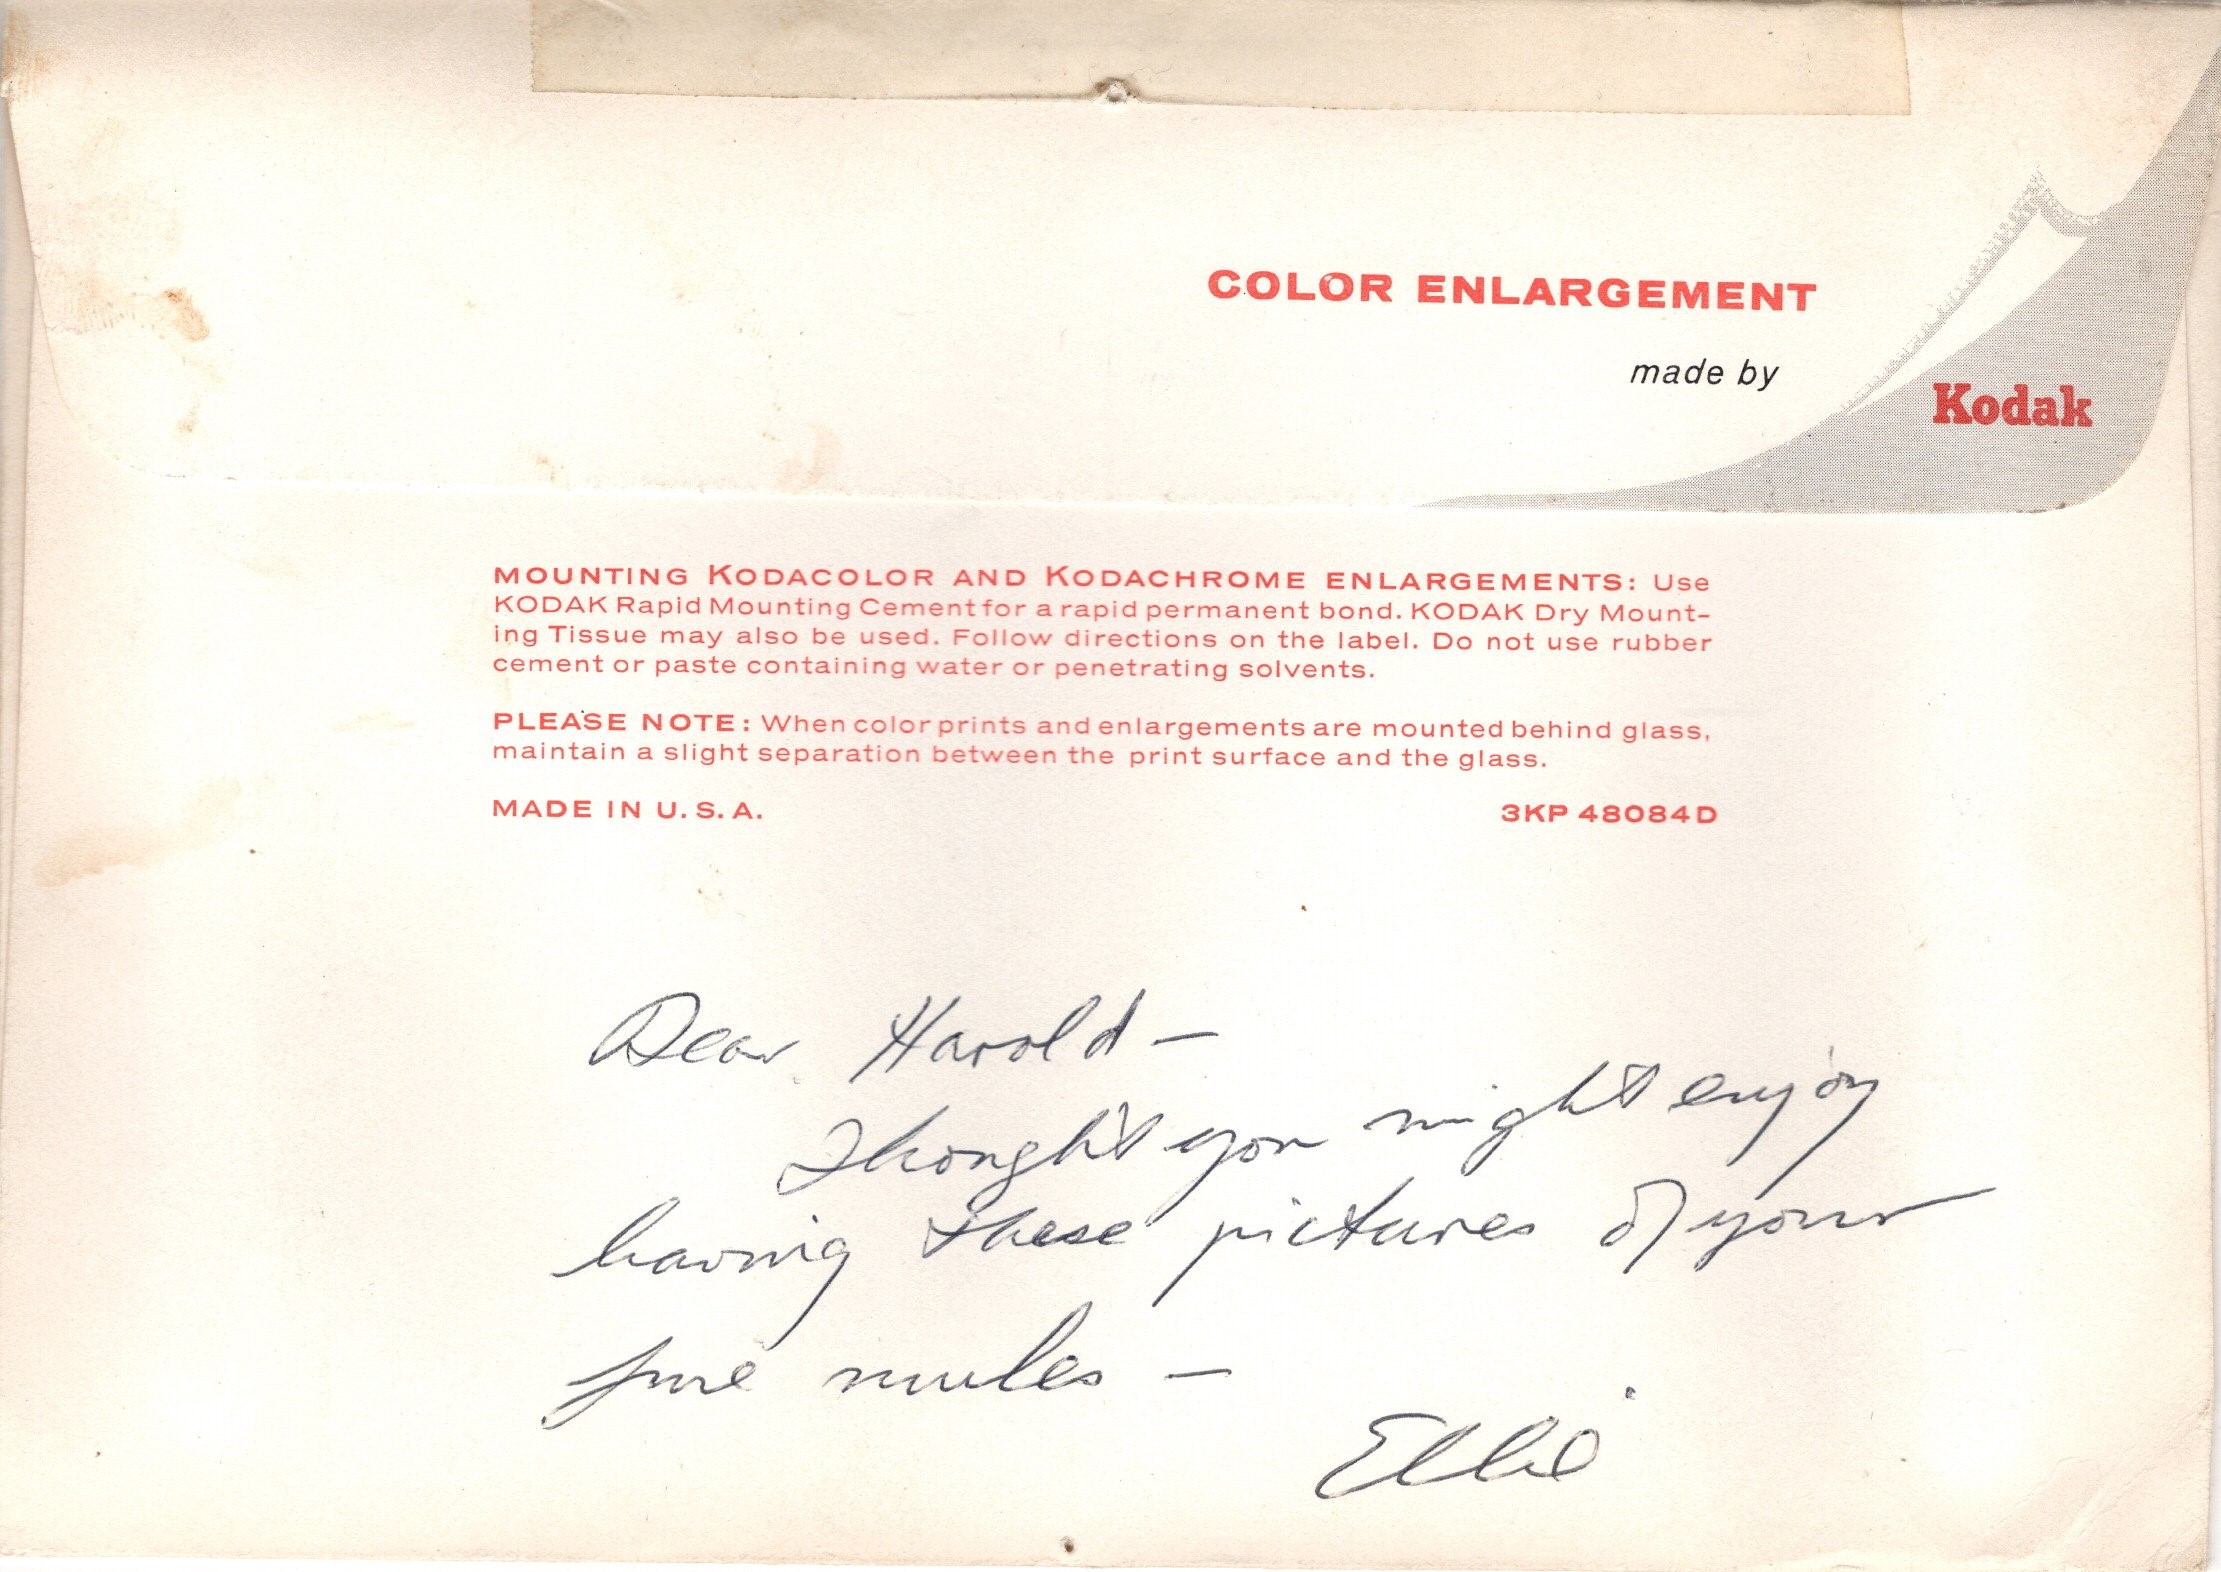 COLOR ENLARGEMENT
made by
Kodak
MOUNTING KODACOLOR AND KODACHROME ENLARGEMENTS: Use
KODAK Rapid Mounting Cement for a rapid permanent bond. KODAK Dry Mount-
ing Tissue may also be used. Follow directions on the label. Do not use rubber
cement or paste containing water or penetrating solvents.
PLEASE NOTE: When color prints and enlargements are mounted behind glass,
maintain a slight separation between the print surface and the glass.
MADE IN U. S. A. 3KP 48084D
Dear Harold —
Thought you might enjoy
having these pictures of your
fine mules —
Ellie